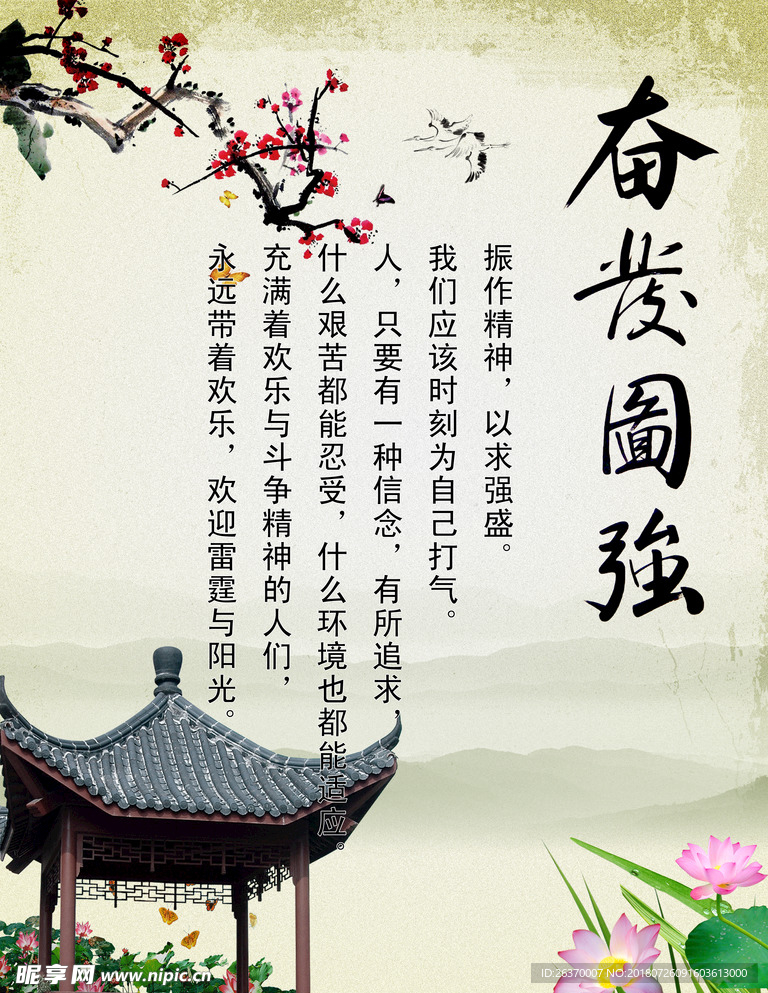 奮發圖強
振作精神，以求强盛。
我们应该时刻为自己打气。
人，只要有一种信念，有所追求，
什么艰苦都能忍受，什么环境也都能适应。
充满着欢乐与斗争精神的人们，
永远带着欢乐，欢迎雷霆与阳光。
昵享网 www.nipic.cn
ID:26370007 NO:20180726091603613000